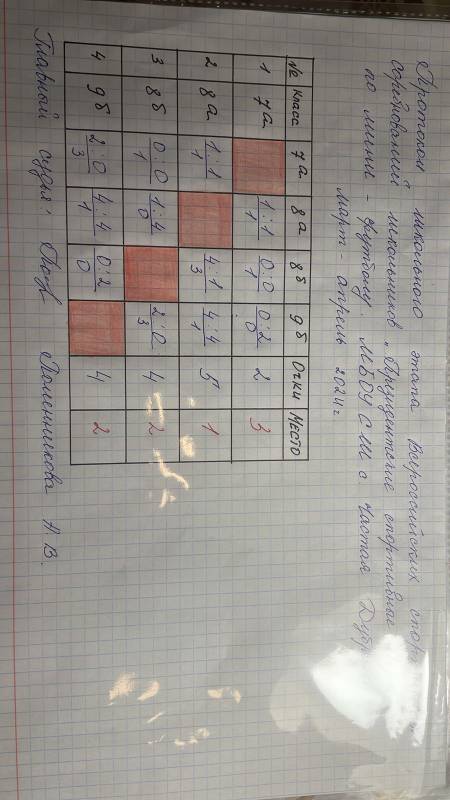 Протокол школьного этапа Всероссийских спор
соревнований школьников „Президентские спортивные
по мини - футболу. МБОУ СШ с Частая Дубр
март - апрель 2024г
№ класс 7а 8а 8б 9б Очки Место
1 7а 1:1 1 0:0 1 0:2 0 2 3
2 8а 1:1 1 4:1 3 4:4 1 5 1
3 8б 0:0 1 1:4 0 2:0 3 4 2
4 9б 2:0 3 4:4 1 0:2 0 4 2
Главный судья: Поломенникова А.В.